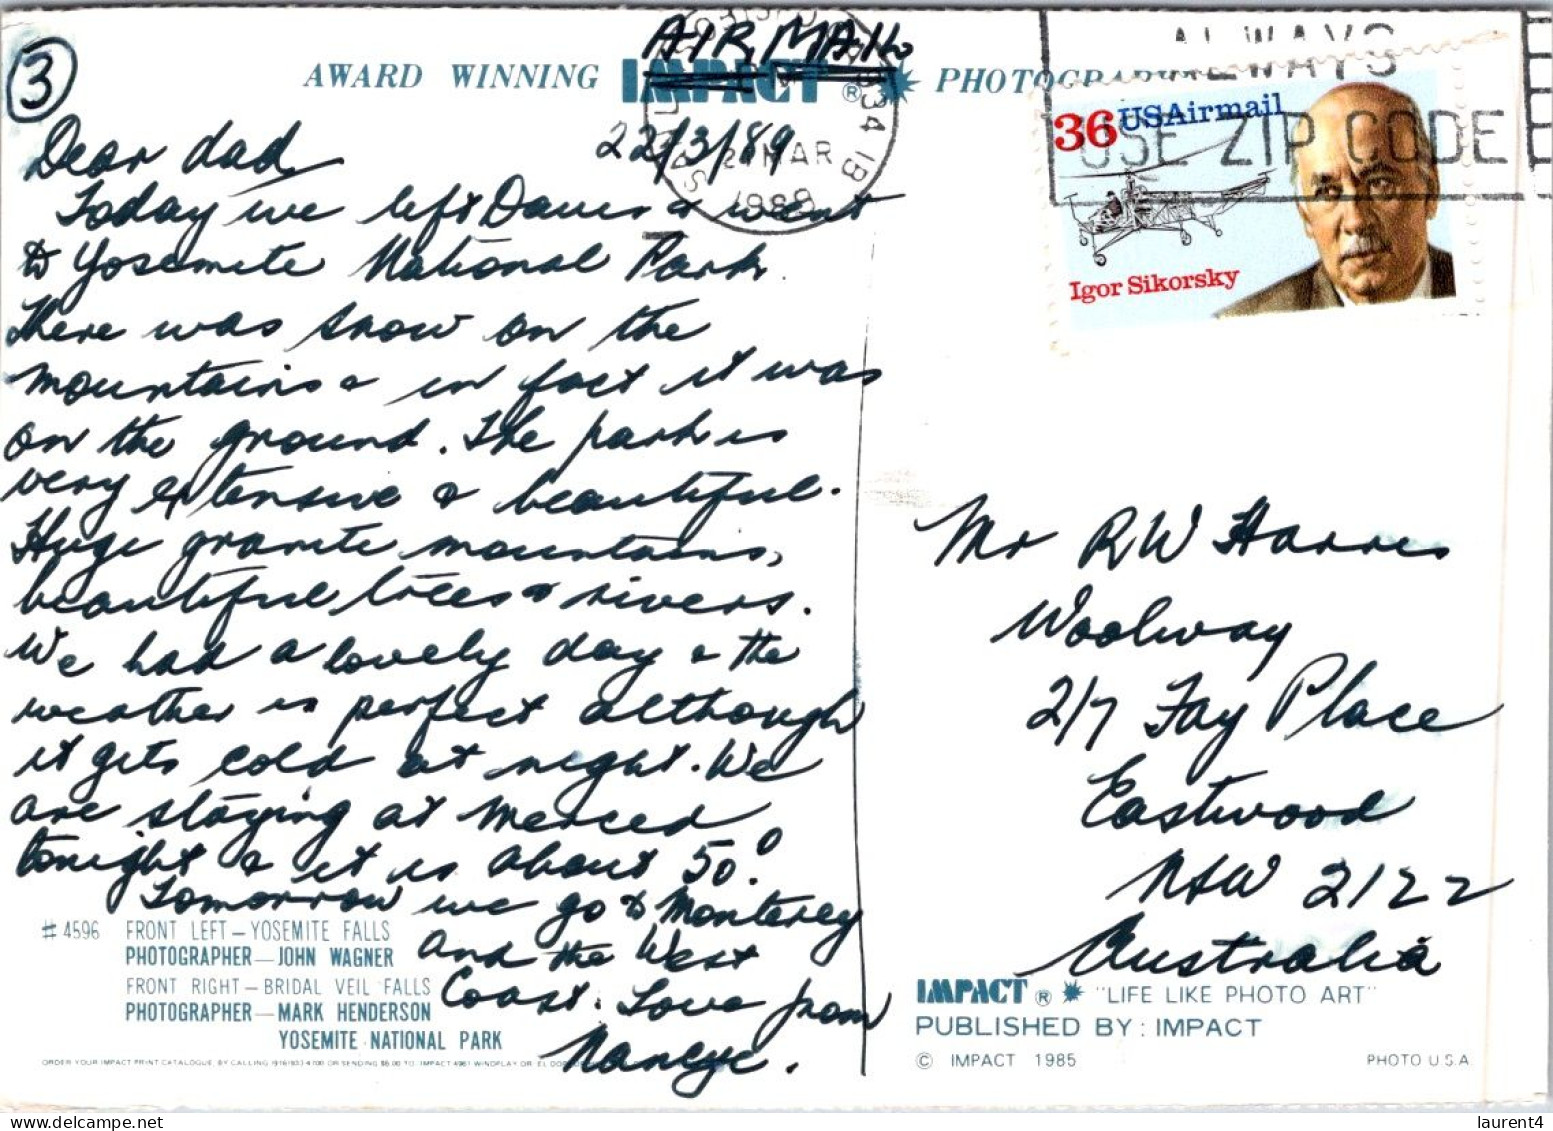 3
AIR MAIL
AWARD WINNING IMPACT ® PHOTOGRAPHY
ALWAYS
USE ZIP CODE
36 USAirmail
Igor Sikorsky
MAR
22/3/89
Dear dad,
Today we left Davis & went
to Yosemite National Park.
There was snow on the
mountains & in fact it was
on the ground. The park is
very extensive & beautiful.
Huge granite mountains,
beautiful trees & rivers.
We had a lovely day & the
weather is perfect although
it gets cold at night. We
are staying at Merced
tonight & it is about 50°!
Tomorrow we go to Monterey
and the West
Coast. Love from
Nancye.
Mr RW Harris
Woolway
2/7 Fay Place
Eastwood
NSW 2122
Australia
# 4596 FRONT LEFT — YOSEMITE FALLS
PHOTOGRAPHER — JOHN WAGNER
FRONT RIGHT — BRIDAL VEIL FALLS
PHOTOGRAPHER — MARK HENDERSON
YOSEMITE NATIONAL PARK
ORDER YOUR IMPACT PRINT CATALOGUE, BY CALLING (916) 933-4700 OR SENDING $5.00 TO: IMPACT 4961 WINDPLAY DR. EL
IMPACT ® "LIFE LIKE PHOTO ART"
PUBLISHED BY: IMPACT
© IMPACT 1985
PHOTO U.S.A.
laurent4